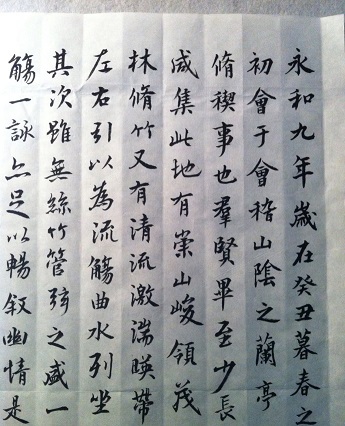 永和九年歲在癸丑暮春之
初會于會稽山陰之蘭亭
脩稧事也羣賢畢至少長
咸集此地有崇山峻領茂
林脩竹又有清流激湍暎帶
左右引以為流觴曲水列坐
其次雖無絲竹管弦之盛一
觴一詠亦足以暢叙幽情是